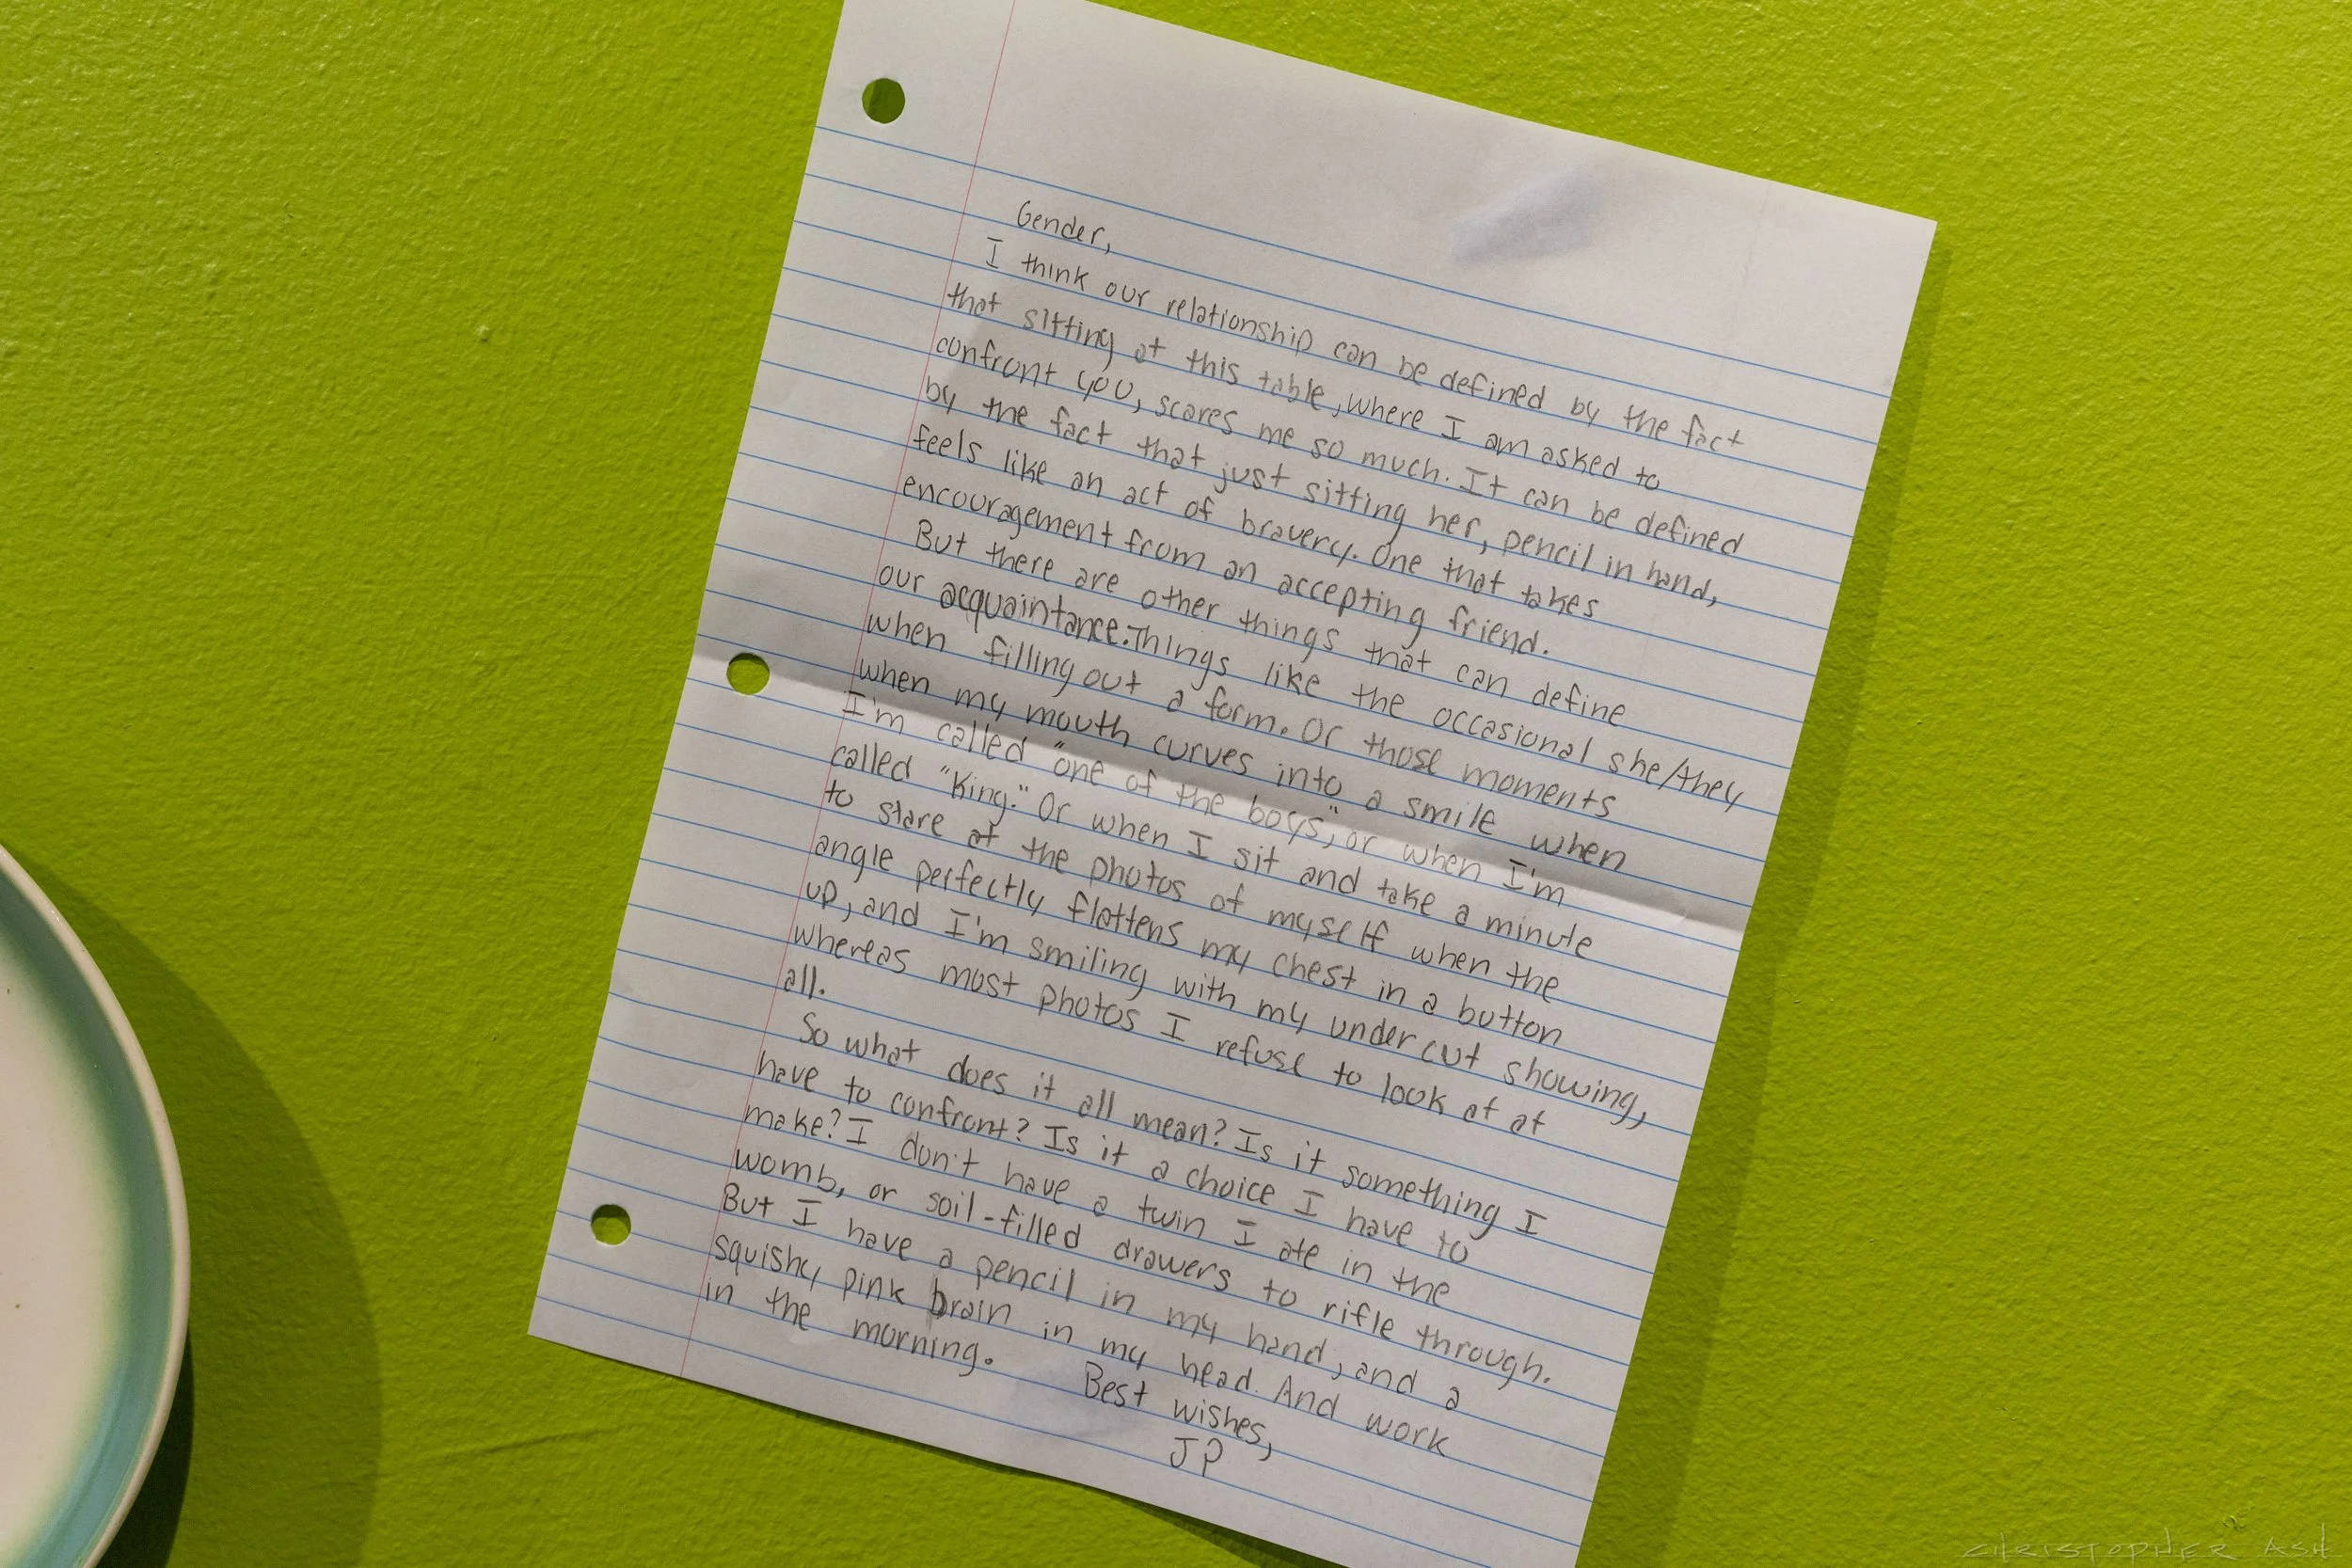 Gender,
I think our relationship can be defined by the fact
that sitting at this table, where I am asked to
confront you, scares me so much. It can be defined
by the fact that just sitting her, pencil in hand,
feels like an act of bravery. One that takes
encouragement from an accepting friend.
But there are other things that can define
our acquaintance. Things like the occasional she/they
when filling out a form. Or those moments
when my mouth curves into a smile when
I'm called "one of the boys", or when I'm
called "King." Or when I sit and take a minute
to stare at the photos of myself when the
angle perfectly flattens my chest in a button
up, and I'm smiling with my under cut showing,
whereas most photos I refuse to look at at
all.
So what does it all mean? Is it something I
have to confront? Is it a choice I have to
make? I don't have a twin I ate in the
womb, or soil-filled drawers to rifle through.
But I have a pencil in my hand, and a
squishy pink brain in my head. And work
in the morning.
Best wishes,
JP
CHRISTOPHER ASH